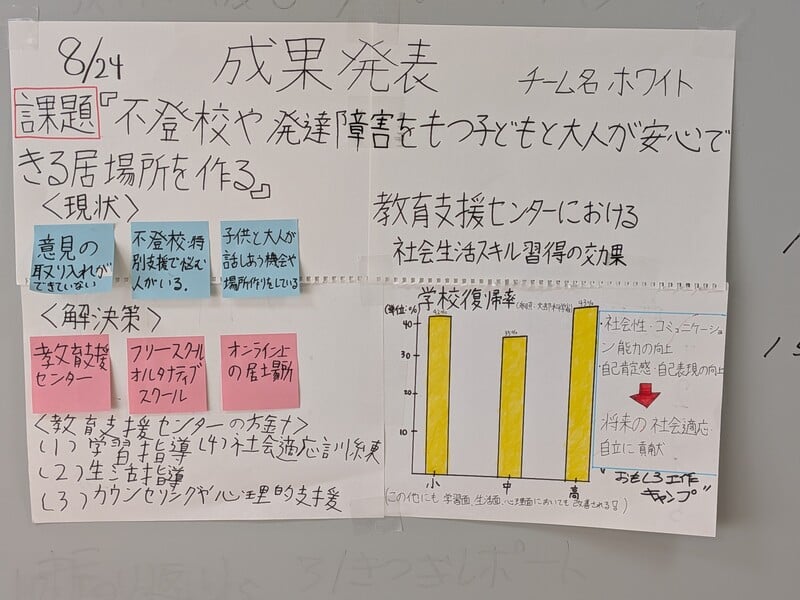 8/24
成果発表
チーム名 ホワイト
課題『不登校や発達障害をもつ子どもと大人が安心で
きる居場所を作る』
<現状>
意見の
取り入れが
できていない
不登校・特
別支援で悩む
人がいる.
子供と大人が
話しあう機会や
場所作りをしている
<解決策>
教育支援
センター
フリースクール
オルタナティブ
スクール
オンライン上
の居場所
(1) 学習指導 (4)社会適応訓練
(2)生活指導
(3)カウンセリングや心理的支援
教育支援センターにおける
社会生活スキル習得の効果
学校復帰率
(単位:%)
42%
35%
43%
40
30
20
10
小
中
高
・社会性・コミュニケーショ
ン能力の向上
・自己肯定感・自己表現の向上
将来の社会適応・
自立に貢献
"おもしろ工作
キャンプ"
(この他にも 学習面、生活面、心理面においても改善される!)